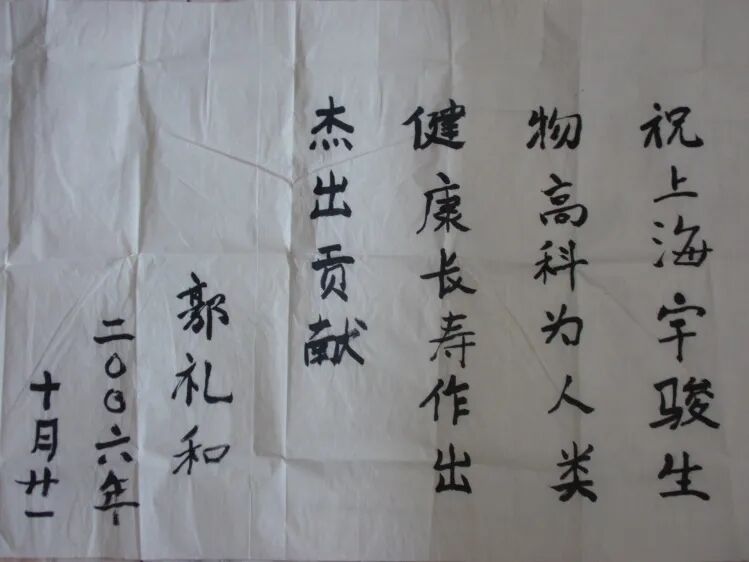 祝上海宇骏生
物高科为人类
健康长寿作出
杰出贡献
郭礼和
二〇〇六年
十月廿一